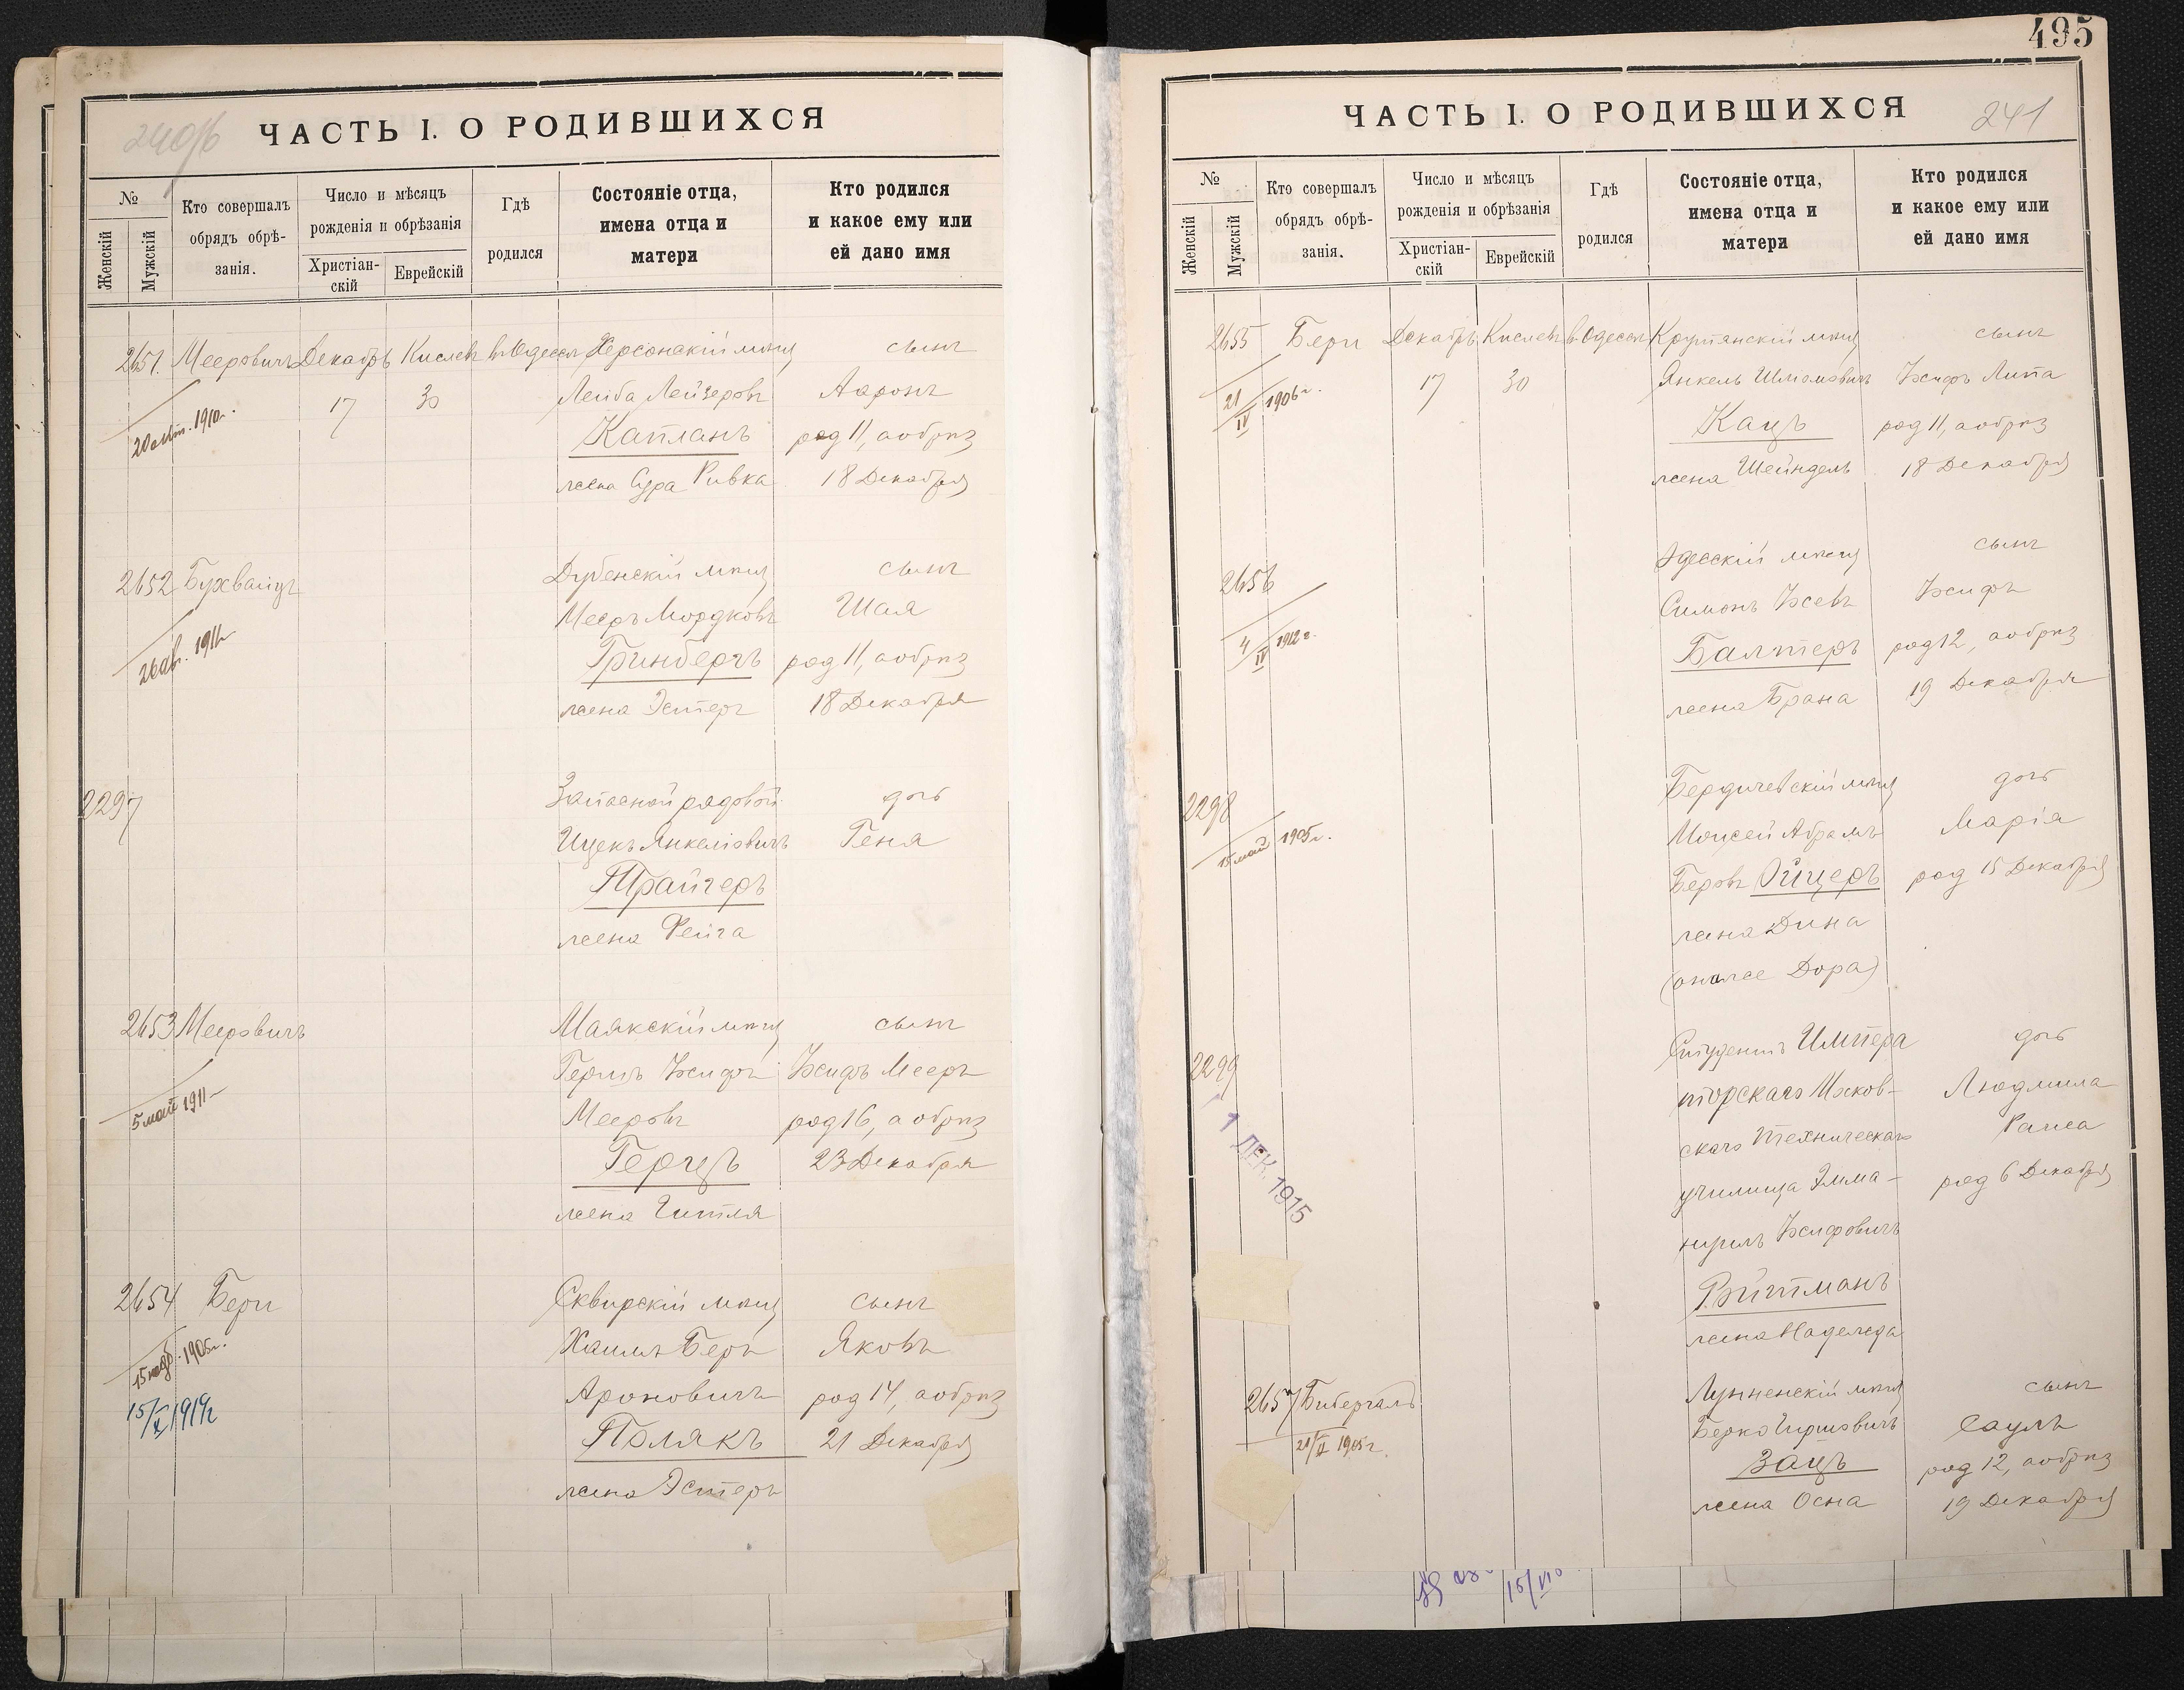 240/б
ЧАСТЬ I. О РОДИВШИХСЯ
№
Женскій
Мужскій
Кто совершалъ
обрядъ обрѣ-
занія.
Число и мѣсяцъ
рожденія и обрѣзанія
Христіан-
скій
Еврейскій
Гдѣ
родился
Состояніе отца,
имена отца и
матери
Кто родился
и какое ему или
ей дано имя
2651. Мееровичъ Декабрь Кислевъ в. Одессѣ Херсонскій мѣщ сынъ
17 30 Лейба Лейзеровъ Ааронъ
20 1910г. Капланъ род 11, а обрѣз
жена Сура Ривка 18 Декабря
2652 Бухвайцъ Дубенскій мѣщ сынъ
Мееръ Мордковъ Шая
1911 Гринбергъ род 11, а обрѣз
жена Эстеръ 18 Декабря
2297 Запасной рядовой дочь
Ицекъ Янкелювичъ Геня
Трайгеръ
жена Фейга
2653 Мееровичъ Маякскій мѣщ сынъ
Гершъ Іосифъ Іосифъ Мееръ
5 май 1911 Мееровъ род 16, а обрѣз
Герцъ 23 Декабря
жена Гитля
2654 Бери Сквирскій мѣщ сынъ
15 1905г. Хаимъ Беръ Яковъ
15/X 1919г Ароновичъ род 14, а обрѣз
Полякъ 21 Декабря
жена Эстеръ
495
ЧАСТЬ I. О РОДИВШИХСЯ
241
№
Женскій
Мужскій
Кто совершалъ
обрядъ обрѣ-
занія.
Число и мѣсяцъ
рожденія и обрѣзанія
Христіан-
скій
Еврейскій
Гдѣ
родился
Состояніе отца,
имена отца и
матери
Кто родился
и какое ему или
ей дано имя
2655 Бери Декабрь Кислевъ в. Одессѣ Крутянскій мѣщ сынъ
21/IV 1906г. 17 30 Янкель Шмомовичъ Іосифъ Липа
Кацъ род 11, а обрѣз
жена Шейндель 18 Декабря
2656 Одесскій мѣщ сынъ
4/IV 1912г. Симонъ Іосевъ Іосифъ
Балтеръ род 12, а обрѣз
жена Брана 19 Декабря
2298 Бердичевскій мѣщ дочь
15 май 1905г. Моисей Абрамъ Марія
Беровъ Ойцеръ род 15 Декабря
жена Дина
(онаже Дора)
2299 Студентъ Импера дочь
торскаго Москов- Людмила
1 ДЕК. 1915 скаго Техническаго Раиса
училища Эмма- род 6 Декабря
нуилъ Іосифовичъ
Ройтманъ
жена Надежда
2657 Бибергалъ Лунненскій мѣщ сынъ
1905г. Берко Гиршовичъ Саулъ
Зацъ род 12, а обрѣз
жена Осна 19 Декабря